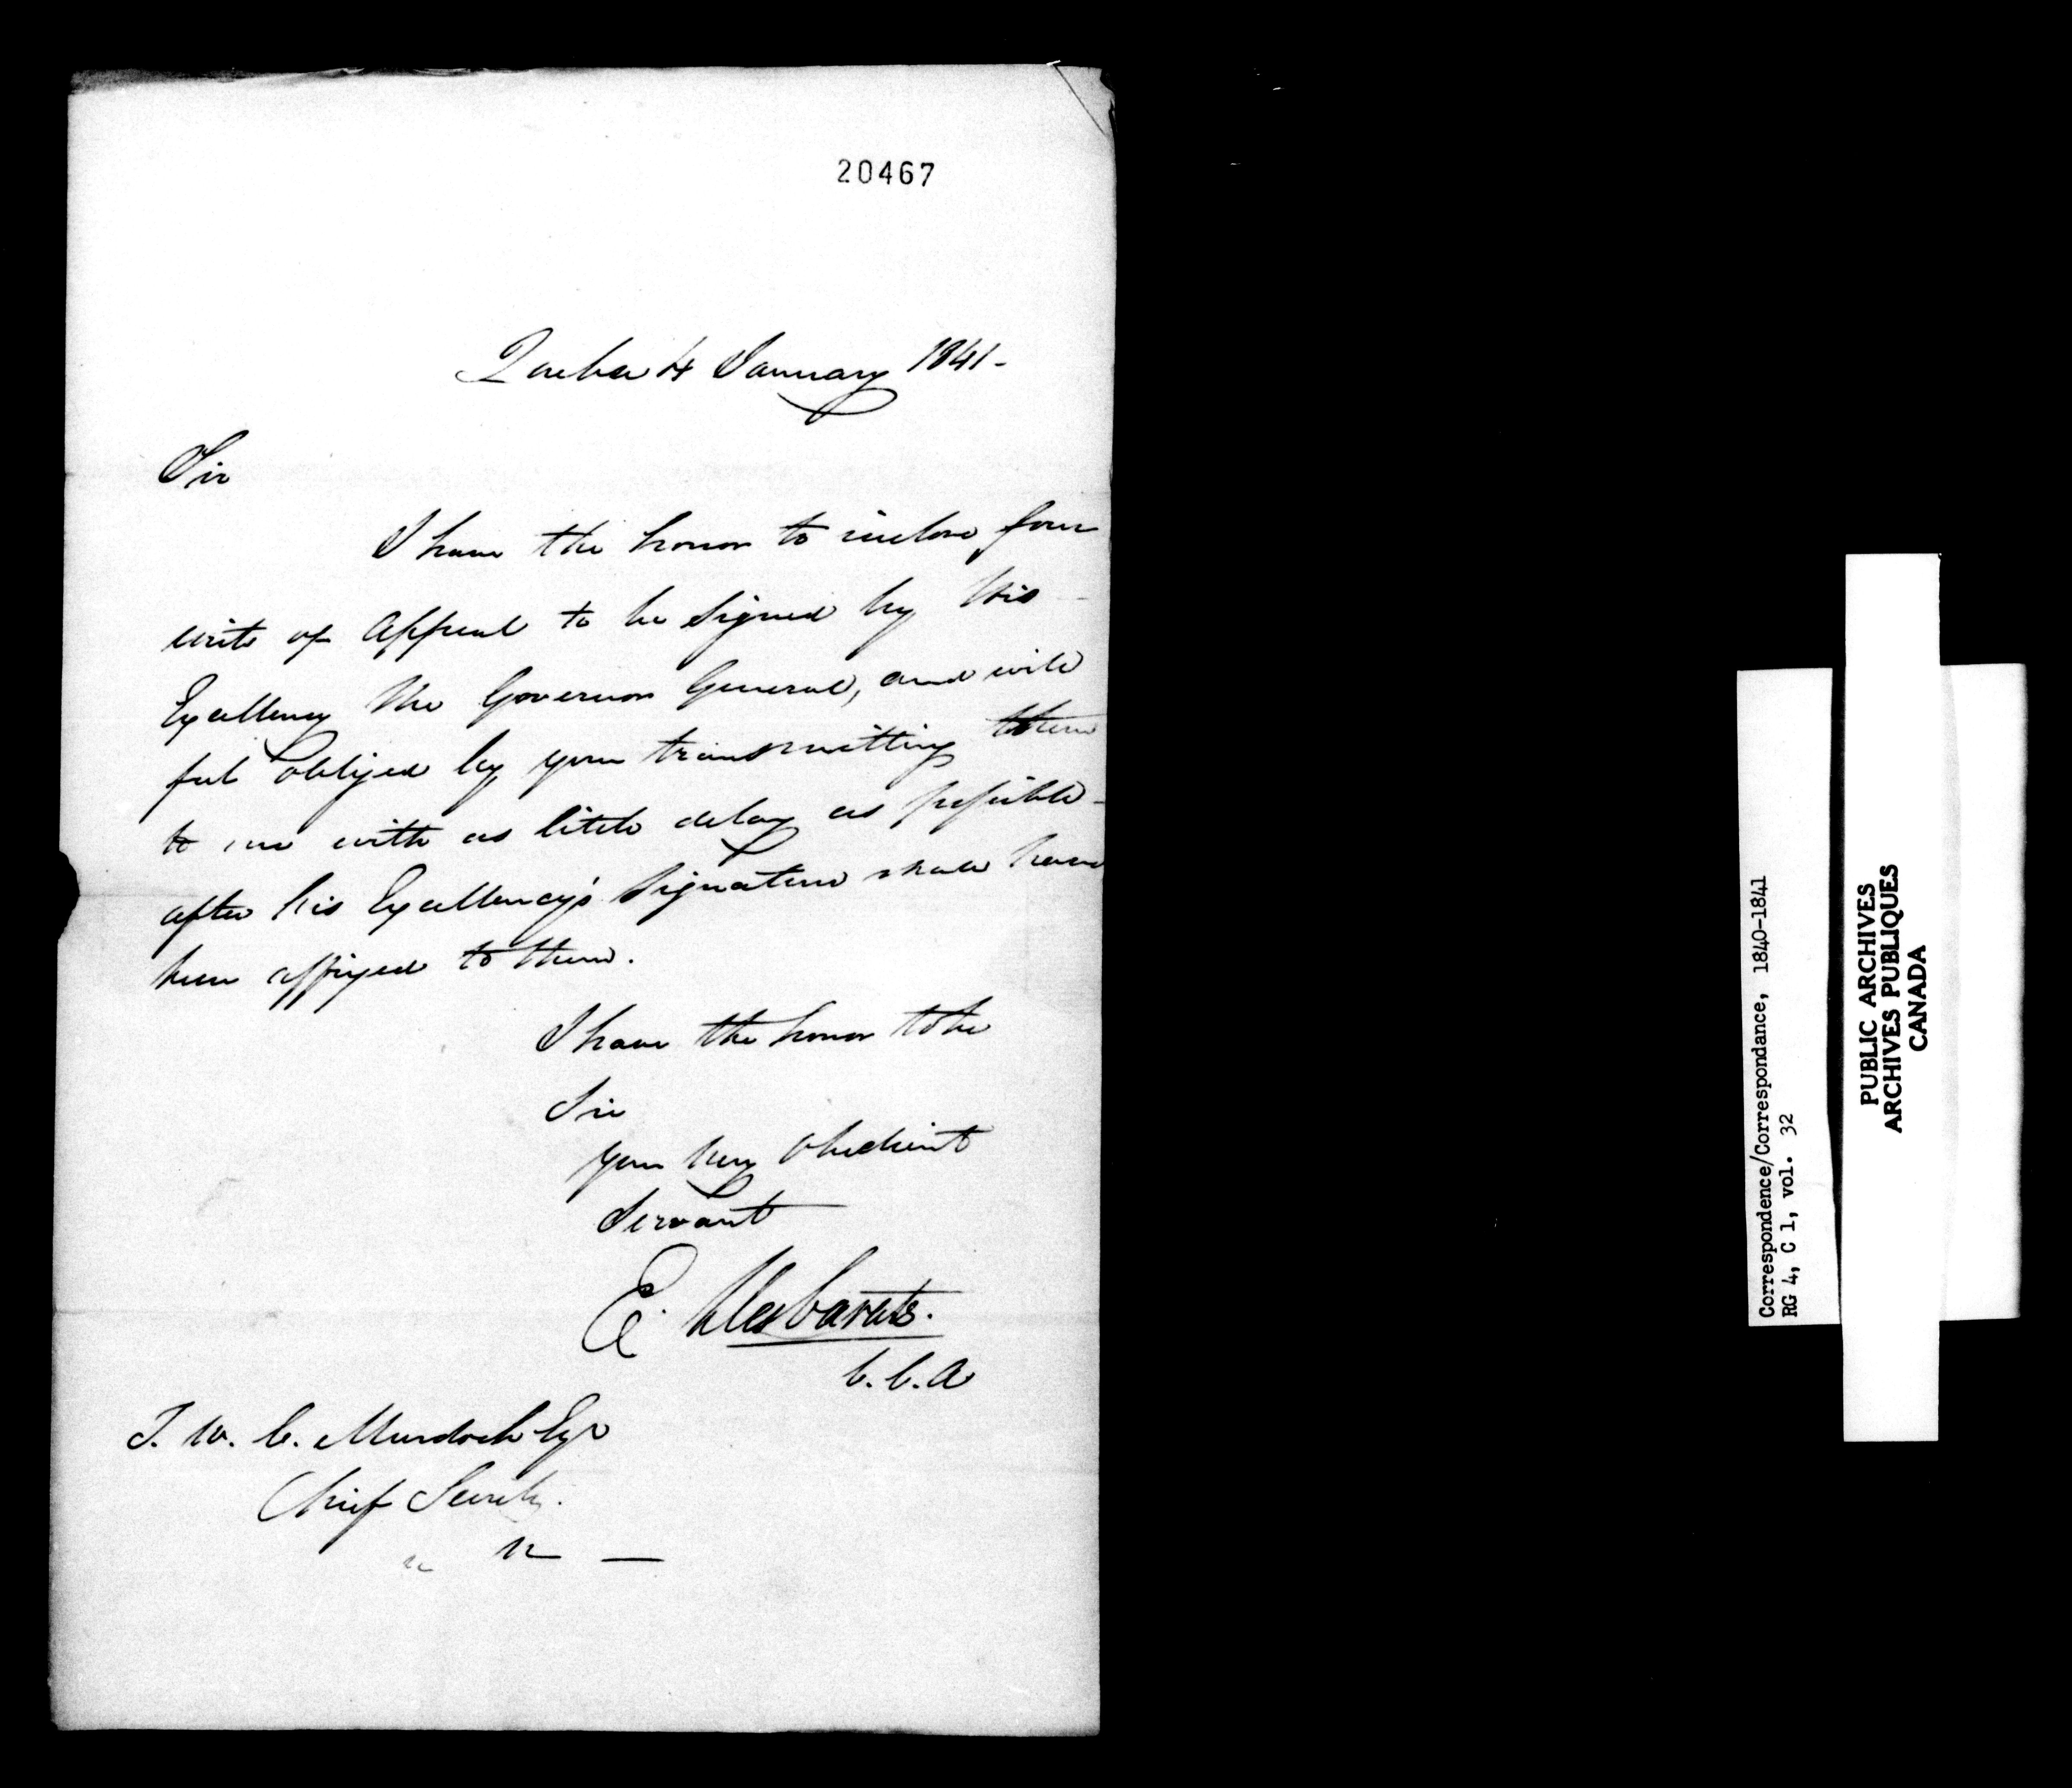 20467
Quebec 4 January 1841-
Sir
I have the honor to inclose four
writs of Appeal to be Signed by His
Excellency the Governor General, and will
feel obliged by your transmitting them
to me with as little delay as possible-
after his Excellency's Signature shall have
been affixed to them.
I have the honor to be
Sir
your very obedient
Servant
E. Desbarats.
C.C.A
T. W. C. Murdoch Esqr
Chief Secrety.
Correspondence/Correspondance, 1840-1841
RG 4, C 1, vol. 32
PUBLIC ARCHIVES
ARCHIVES PUBLIQUES
CANADA